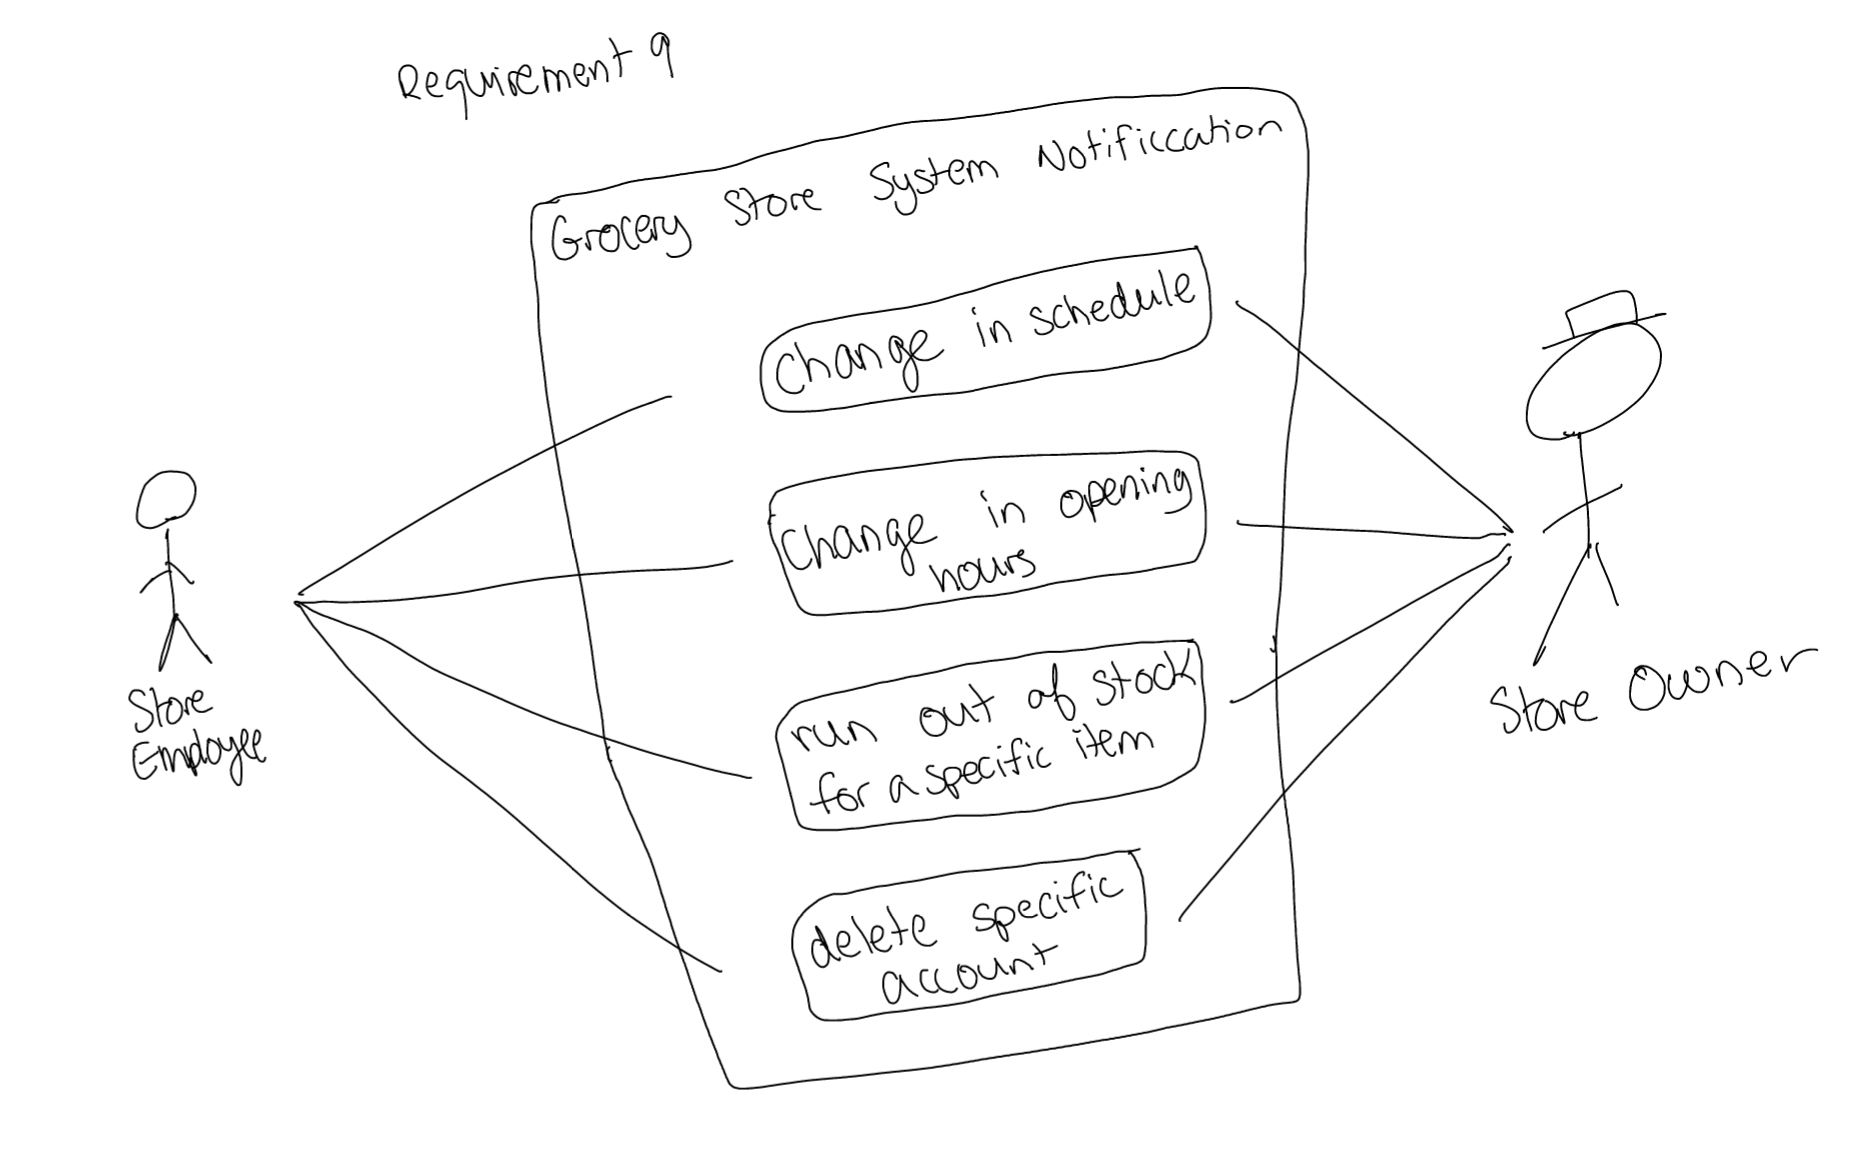 Requirement 9
Grocery Store System Notificcation
change in schedule
change in opening
hours
run out of stock
for a specific item
delete specific
account
Store
Employee
Store Owner